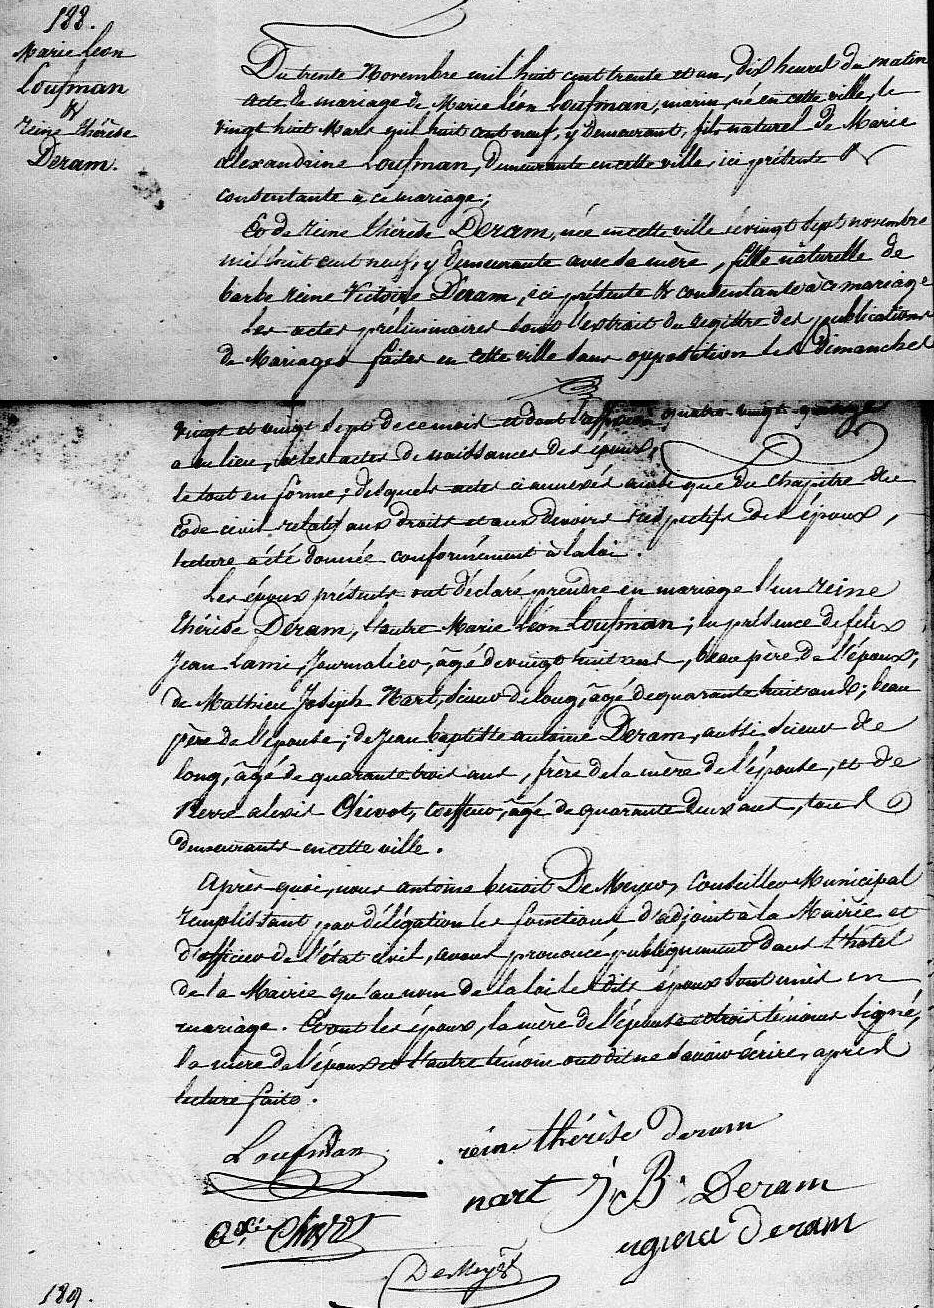 188.
Marie Léon
Loufman
&
reine thérèse
Deram.
Du trente Novembre mil huit cent trente et un, dix heures du matin
acte de mariage de Marie Léon Loufman, marin, né en cette ville, le
vingt huit Mars mil huit cent neuf, y demeurant, fils naturel de Marie
alexandrine Loufman, demeurante en cette ville ici présente &
consentante à ce mariage;
Et de reine thérèse Deram, née en cette ville le vingt sept novembre
mil huit cent neuf, y demeurante avec sa mère, fille naturelle de
barbe reine Victoire Deram, ici présente & consentante à ce mariage
Les actes préliminaires sont l'extrait du registre des publications
de Mariages faites en cette ville sans opposition les Dimanches
vingt et vingt sept de ce mois et dont l'affiche
a eu lieu, et les actes de naissances des époux,
le tout en forme; desquels actes ci annexés ainsi que du chapitre du
Code civil relatif aux droits et aux devoirs respectifs des époux,
lecture a été donnée conformément à la loi.
Les époux présents ont déclaré prendre en mariage l'un reine
thérèse Deram, l'autre Marie Léon Loufman; en présence de félix
Jean Lami, Journalier, âgé de vingt huit ans, beau père de l'époux;
de Mathieu Joseph Nart, scieur de long, âgé de quarante huit ans; beau
père de l'épouse; de Jean baptiste antoine Deram, aussi scieur de
long, âgé de quarante trois ans, frère de la mère de l'épouse, et de
Pierre alexis Chivot, coiffeur, âgé de quarante deux ans, tous
demeurants en cette ville.
Après quoi, nous antoine benoit De Meyer, Conseiller Municipal
remplissant par délégation les fonctions d'adjoint à la Mairie et
d'officier de l'état civil, avons prononcé publiquement dans l'hôtel
de la Mairie qu'au nom de la loi les dits époux sont unis en
mariage. Et ont les époux, la mère de l'épouse et trois témoins signé,
la mère de l'époux et l'autre témoin ont dit ne savoir écrire, après
lecture faite.
Loufman
reine thérèse deram
nart J. B. Deram
axis Chivot
deram
DeMeyer
189.